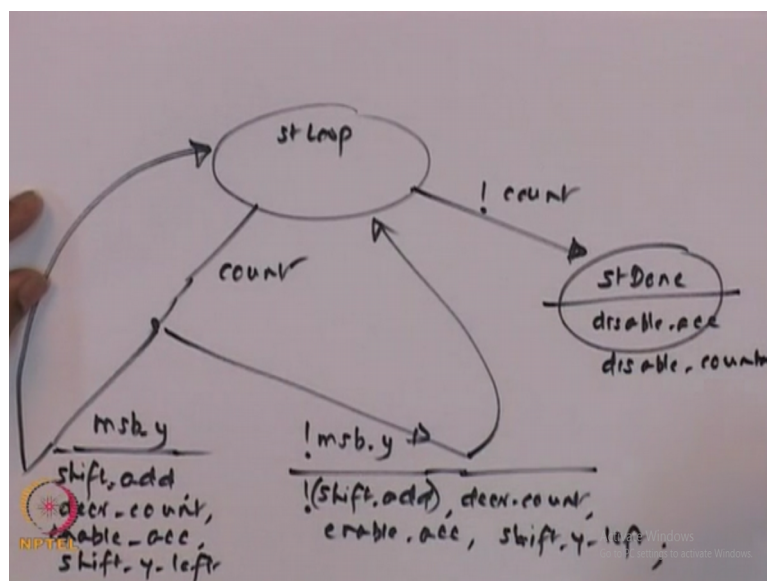 st Loop
! count
count
st Done
disable.acc
disable.count
msb.y
shift.add
decr-count,
enable-acc,
shift.y.left
!msb.y
!(shift.add), decr.count,
enable.acc, shift.y.left,
NPTEL
Activate Windows
Go to PC settings to activate Windows.